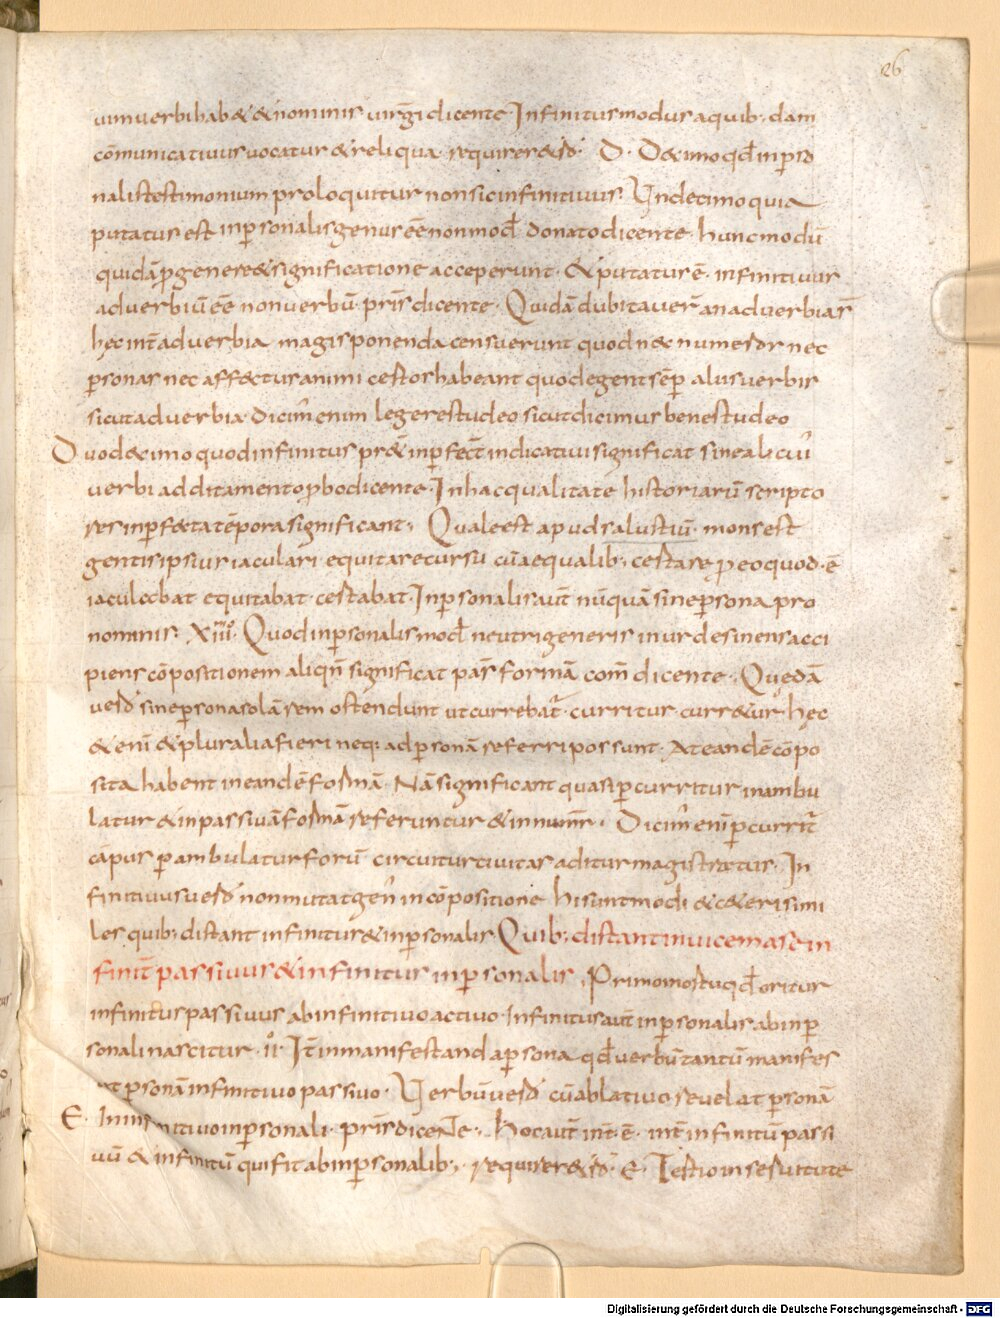 26
uimuerbihab& &nominis uirgi dicente Infinitus modus a quib; dam
cōmunicatiuus uocatur & reliqua requirer& sđ D. D&imo qđ inpso
nalis testimonium proloquitur non sic infinitiuus. Undecimo quia
putatus est inpersonalis genus eē non mođ donato dicente hunc modū
quidā p genere & significatione acceperunt. & putatur ē infinitiuus
aduerbiū eē non uerbū pris dicente. Quidā dubitauer an aduerbia s
hęc int aduerbia magis ponenda censuerunt quod nec numeros nec
psonas nec affectus animi certos habeant quod egent sēp aliis uerbis
sicut aduerbia dicim enim legere studeo sicut dicimus bene studeo
Duodecimo quod infinitus pr& inpfect indicatiui significat sine alicui
uerbi additamento pbo dicente. In hac qualitate historiarū scripto
res inpfecta tēpora significant; Quale est apud salustiū mons est
gentis ipsius iaculari equitare cursu cū aequalib; certare p eo quod ē
iaculabat equitabat certabat. Inpsonalis aut nūquā sine psona pro
nominis. XIII. Quod inpsonalis mođ neutri generis in ur desinens acci
piens cōpositionem aliqn significat pas formā com dicente. Quędā
uero sine psona solā rem ostendunt ut currebat curritur curr&ur hęc
& enī & pluralia fieri neq; ad psonā referri possunt. At eandē cōpo
sita habent in eandē formā. Nā significant quasi pcurritur inambu
latur & in passiuā formā referuntur & in numr. Dicim eni pcurrit
cāpus pambulatur forū circuitur ciuitas aditur magistratus. In
finitiuus uero non mutat gen in cōpositione hi sunt modi & c&eri simi
les quib; distant infinitus & inpsonalis Quib; distant inuicem a se in
finit passiuus & infinitus inpsonalis. Primo mostu qđ oritur
infinitus passiuus ab infinitiuo actiuo. Infinitus aut inpsonalis ab inp
sonali nascitur. II. It in manifestanda psona qđ uerbū tantū manifes
at psonā infinitiuo passiuo. Uerbū uero cū ablatiuo reuelat psonā
E. In infinitiuo inpsonali. pris dicente. Hoc aut int ē int infinitū passi
uū & infinitū qui fit ab inpsonalib; requirer& sđ E. Tertio in seruitute
Digitalisierung gefördert durch die Deutsche Forschungsgemeinschaft - DFG